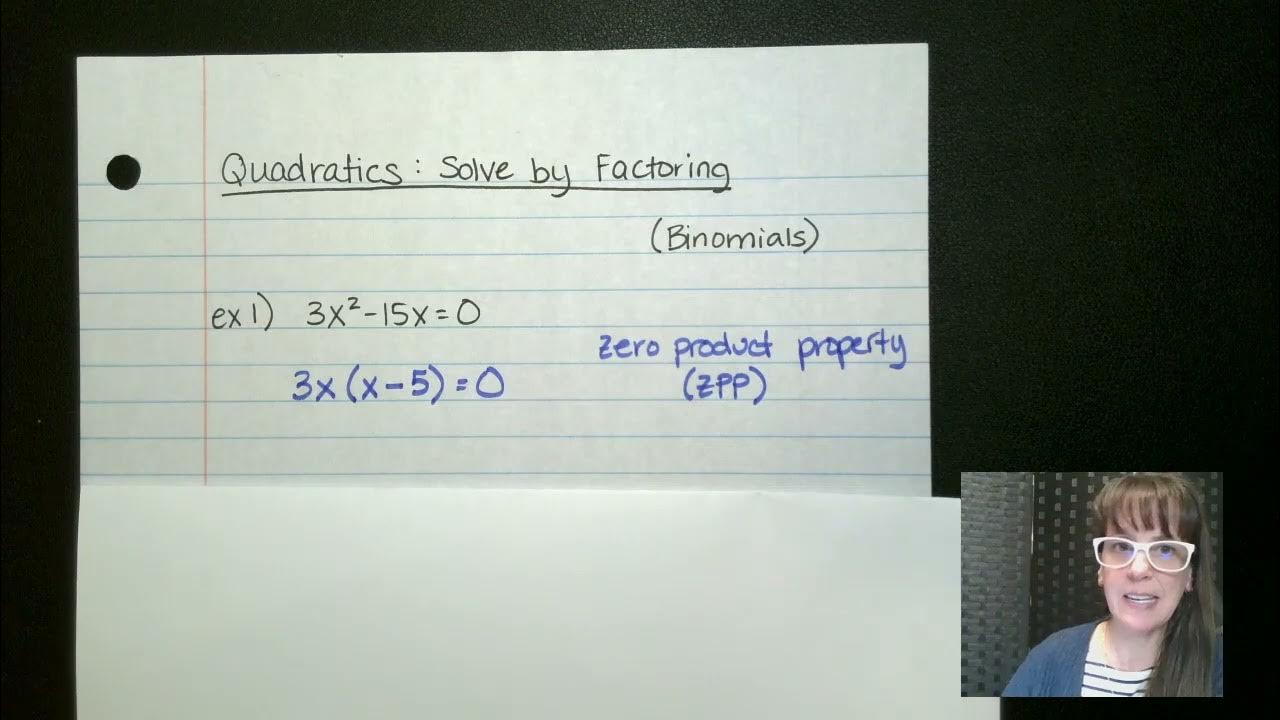 Quadratics: Solve by Factoring
(Binomials)
ex 1) 3x²-15x=0
zero product property
3x(x-5)=0
(ZPP)